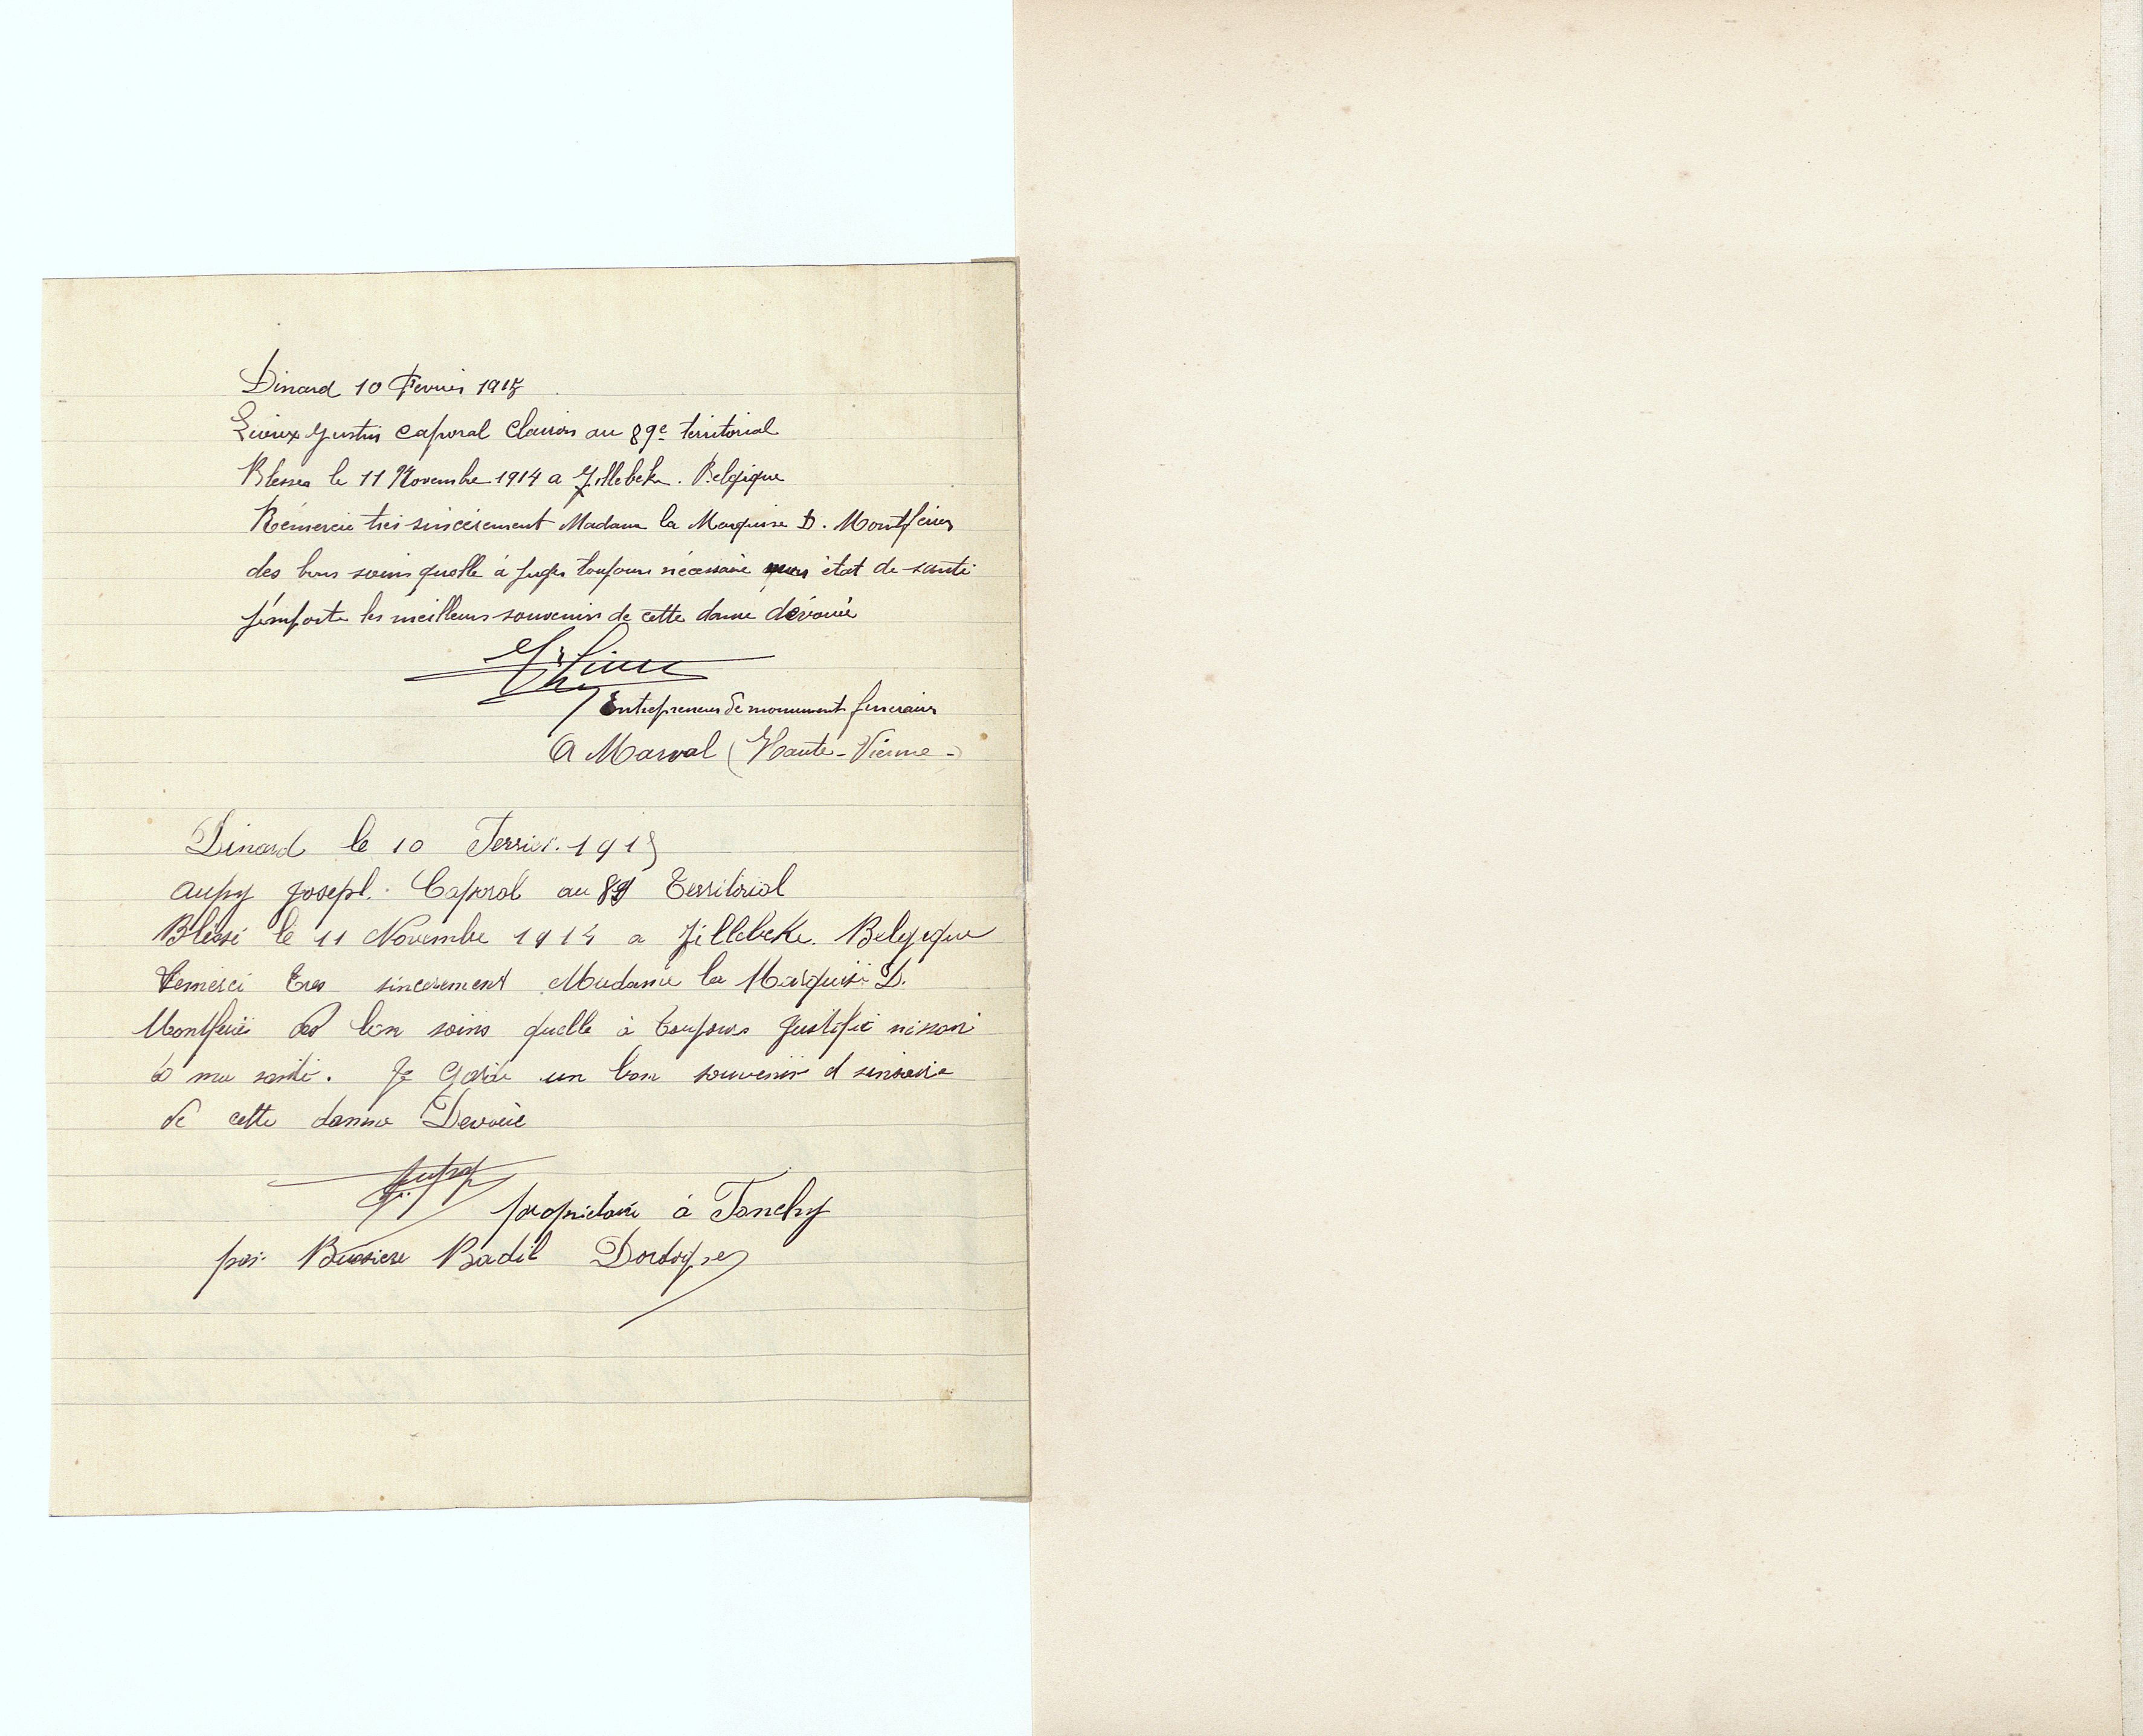 Dinard 10 Fevrier 1915
Justin Caporal Clairon au 89e territorial
Blesser le 11 Novembre 1914 a Zillebeke. Belgique
Rémercie très sincèrement Madame la Marquise D. Montferier
des bons soins quelle à juger toujours nécessaire mon état de santé
j'émporte les meilleurs souvenirs de cette dame dévouée
Entrepreneur de monument funeraire
A Marval (Haute-Vienne-)
Dinard le 10 Fevrier. 1915
Aupy Joseph. Caporal au 89 Territorial
Blessé le 11 Novembre 1914 a Zillebeke. Belgique
Remerci tres sincerement Madame la Marquise D.
Montferié des bon soins quelle à toujours justifié
a ma santé. Je garde un bon souvenir et sinsere
de cette damme Devouée
Aupy
propriétaire à
par Bussiere Badil Dordogne